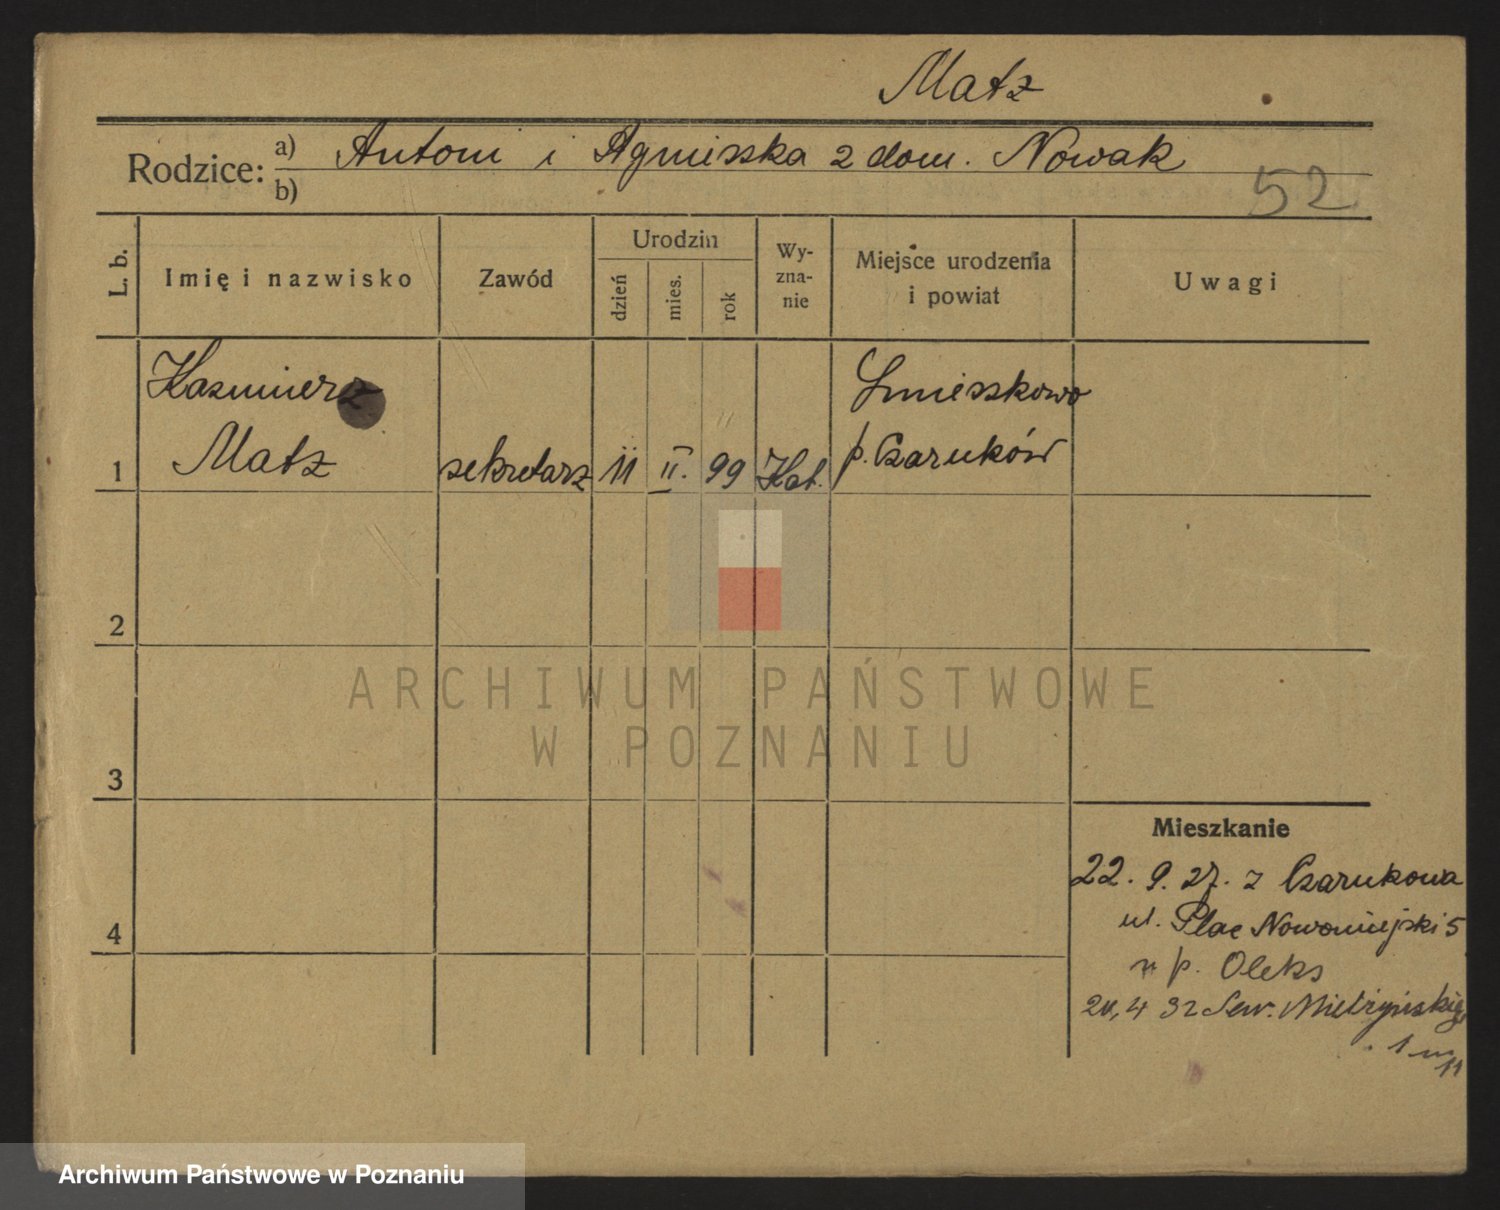 Matz
Rodzice: a) Antoni i Agnieszka z dom. Nowak
b)
52
L. b.
Imię i nazwisko
Zawód
Urodzin
dzień
mies.
rok
Wy-
zna-
nie
Miejsce urodzenia
i powiat
Uwagi
1
Kazimierz
Matz
sekretarz
11
II.
99
Kat.
Śmieszkowo
p. Czarnków
2
3
4
Mieszkanie
22. 9. 27. z Czarnkowa
ul. Plac Nowomiejski 5
p. Oleks
4 32 Sew. Mielżyńskiego
1 m
11
ARCHIWUM PAŃSTWOWE
W POZNANIU
Archiwum Państwowe w Poznaniu